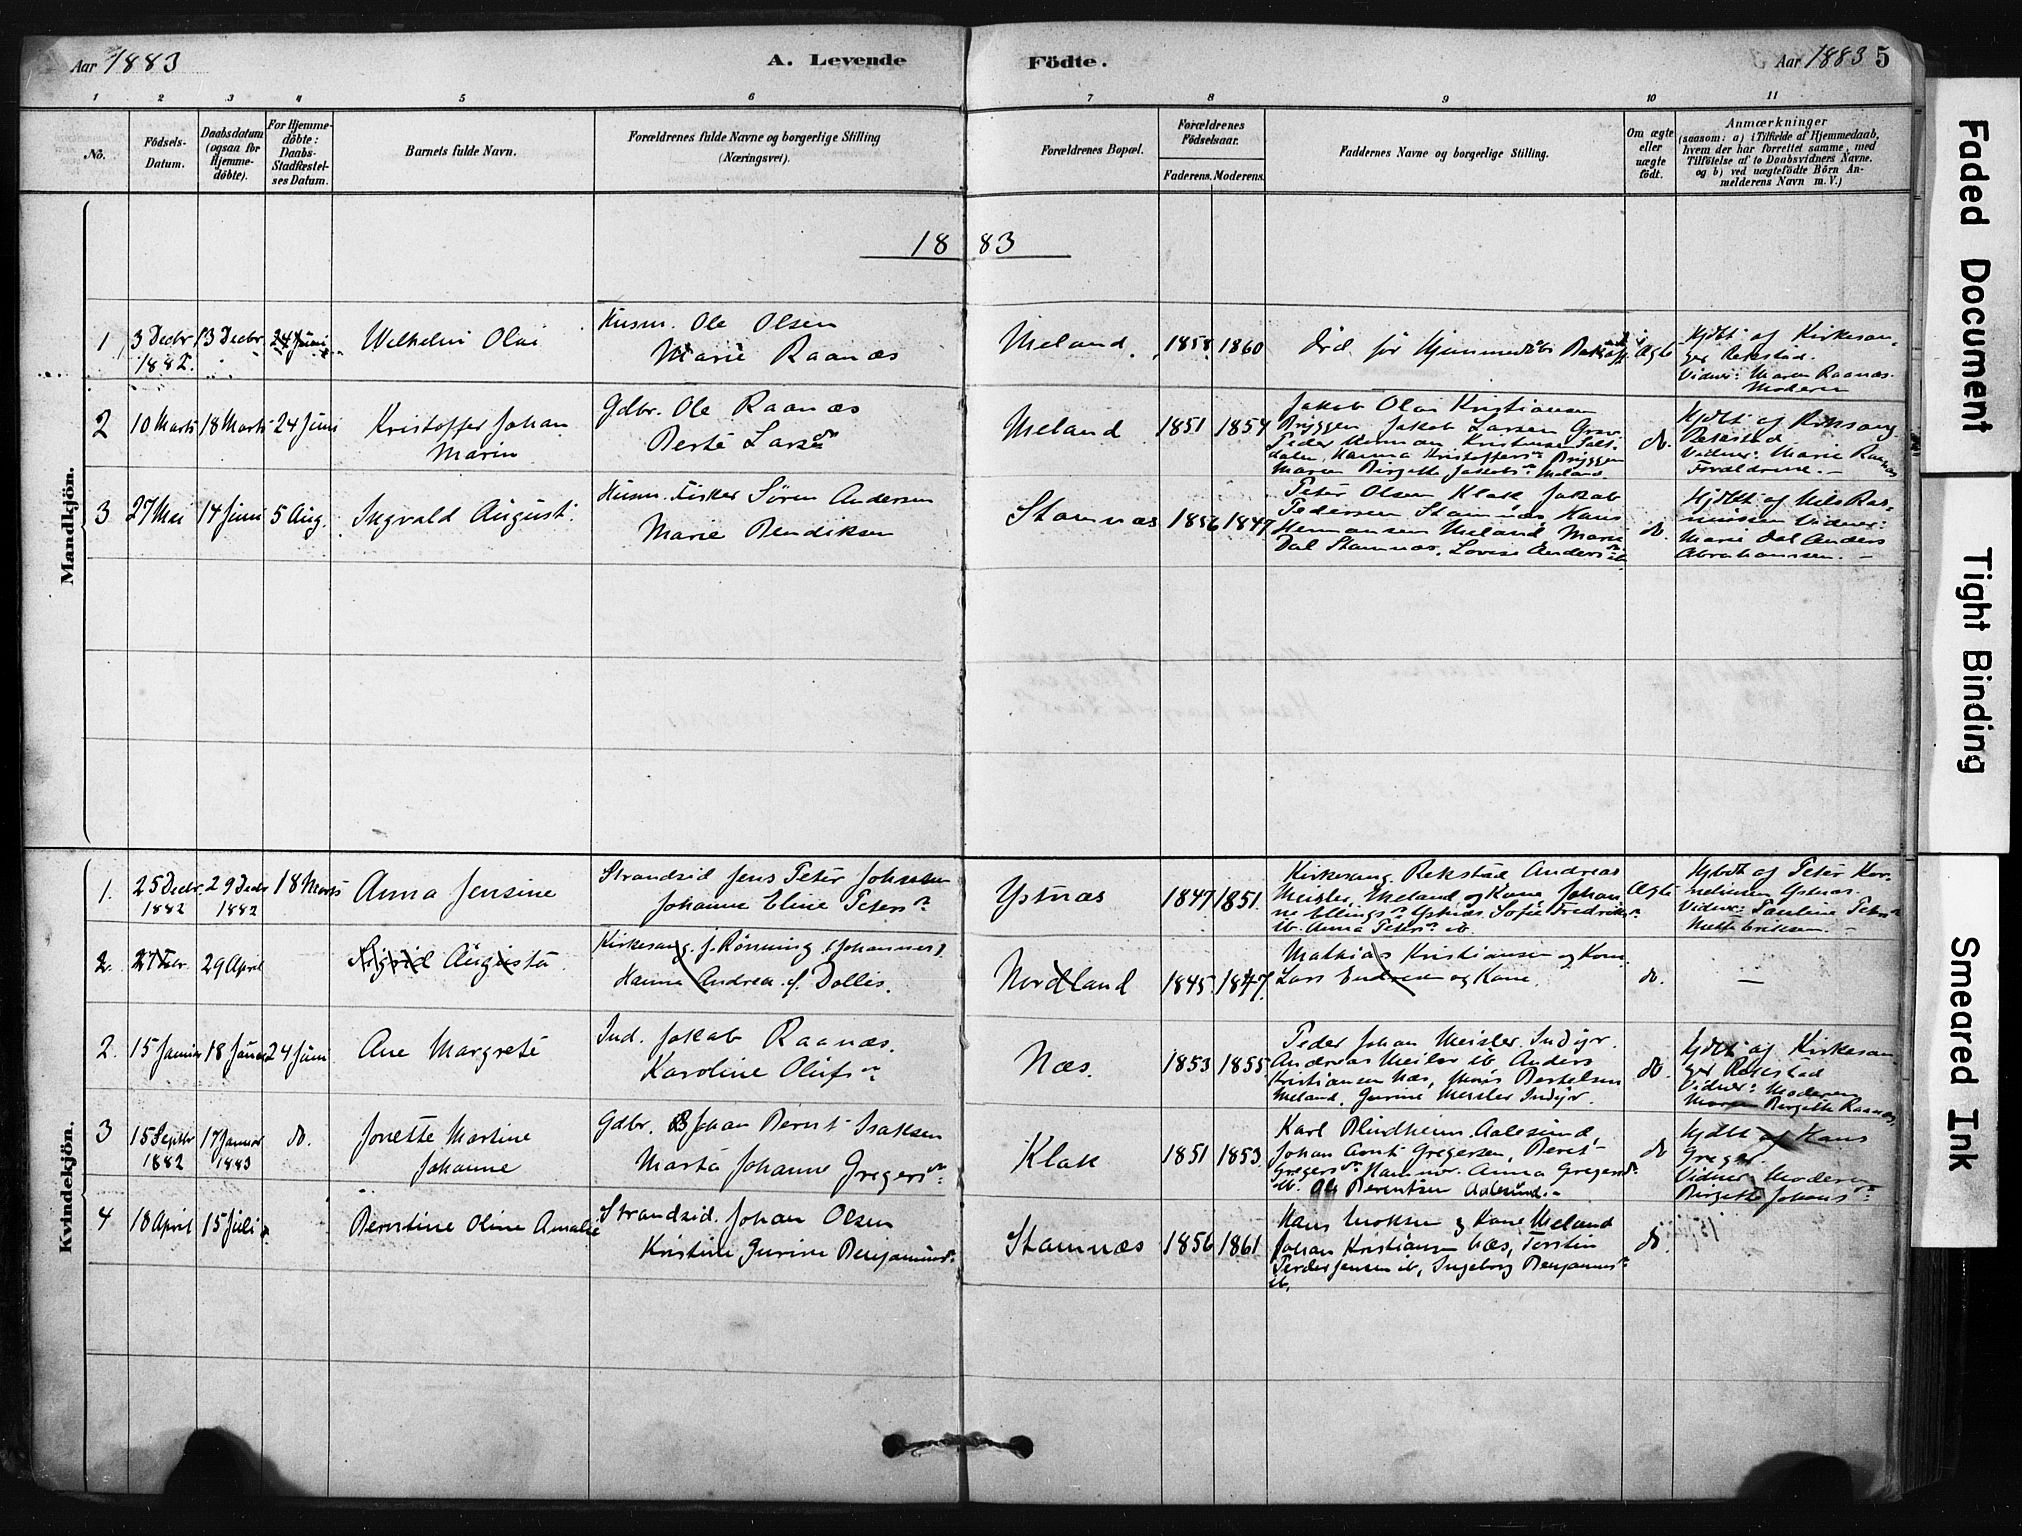 Aar 1883
A. Levende
Födte.
Aar 1883 5
1 2 3 4 5 6 7 8 9 10 11
No.
Födsels-
Datum.
Daabsdatum
(ogsaa for
Hjemme-
döbte).
For Hjemme-
döbte:
Daabs-
Stadfæstel-
ses Datum.
Barnets fulde Navn.
Forældrenes fulde Navne og borgerlige Stilling
(Næringsvei).
Forældrenes Bopæl.
Forældrenes
Födselsaar.
Faderens. Moderens.
Faddernes Navne og borgerlige Stilling.
Om ægte
eller
uægte
födt.
Anmærkninger
(saasom: a) i Tilfælde af Hjemmedaab,
hvem der har forrettet samme, med
Tilföielse af to Daabsvidners Navne.
og b) ved uægtefödte Börn An-
melderens Navn m. V.)
1883
Mandkjön.
1
3 Decbr
1882.
13 Decbr
24 Juni
Wilhelm Olai
Husm. Ole Olsen
Marie Raanæs
Meland
1858 1860
Död før Hjemmedöbs
Ægte
Hjdbt af Kirkesan-
ger Rekstad.
Vidner: Maren Raanæs.
Moderen
2
10 Marts
18 Marts
24 Juni
Kristoffer Johan
Marin
Gdbr. Ole Raanæs
Berte Larsdr
Meland
1851 1854
Jakob Olai Kristiansen
Bryggen Jakob Larsen
Peder Herman Kristensen
Hanna Kristoffersdr Bryggen
Maren Birgitte Jakobsdr Meland.
do.
Hjdbt af Kirksang.
Rekestad
Vidner: Marie Raanæs
Forældrene. -
3
27 Mai
14 Juni
5 Aug.
Ingvald August.
Husm. Fisker Sören Andersen
Marie Bendiksen
Stamnæs
1856 1847
Peter Olsen Klak, Jakob
Pedersen Stamnæs, Hans
Hermansen Meland, Marie
Dal Stamnæs, Lovise Andersdr ib.
do.
Hjdbt af Nils Ras-
mussen Vidner:
Marie Dal Anders
Abrahamsen. -
Kvindekjön.
1.
25 Decbr
1882
29 Decbr
1882
18 Marts
Anna Jensine
Strandsid. Jens Peter Johnsen
Johanne Eline Petersdr
Ystnæs
1847 1851
Kirkesang. Rekstad Andreas
Meisler, Meland og Kone, Johan-
ne Ellingsdr Ystnæs, Sofie Fredriksdr
ib. Anna Petersdr ib.
Ægte
Hjbdt af Peter Kor-
neliusen Ystnæs.
Vidner: Pauline Petersdr
Mette Eriksen. -
2.
27 Febr.
29 April
Sigrid Augusta.
Kirkesang. J. Rönning (Johannes)
Hanna Andrea f. Dollis.
Nordland
1845 1847.
Mathias Kristiansen og Kone.
Lars Endresen og Kone.
do.
-
2.
15 Januar
18 Januar
24 Juni
Ane Margrete
Ind. Jakob Raanæs.
Karoline Olufsdr
Næs.
1853 1855
Peder Johan Meisler. Indyr.
Andreas Meisler ib Anders
Kristiansen Næs, Monis Bertelsen
Meland, Gurine Meisler Indyr.
do.
Hjdbt af Kirkesan-
ger Rekestad
Vidner: Moderen
Maren Birgitte Raanæs.
3
15 Septbr
1882
17 Januar
1883
do.
Jonette Martine
Johanne
Gdbr. Johan Bernt Isaksen
Marta Johanne Gregersdr
Klak
1851 1853
Karl Blindheim Aalesund,
Johan Arnt Gregersen, Berit
Gregersdr Anna Gregersdr
ib. Ole Berentsen Aalesund. -
do
Hjdbt af Hans
Greger.
Vidner Moderen
Birgitte Johansdr
4
18 April
15 Juli
Berntine Oline Amalie
Strandsid. Johan Olsen
Kristine Gurine Benjaminsdr
Stamnæs
1856 1861
Hans og Kone Meland
Johan Kristiansen Næs, Torstin
Peder Jensen ib, Ingeborg Benjaminsdr
ib.
do.
Faded Document
Tight Binding
Smeared Ink